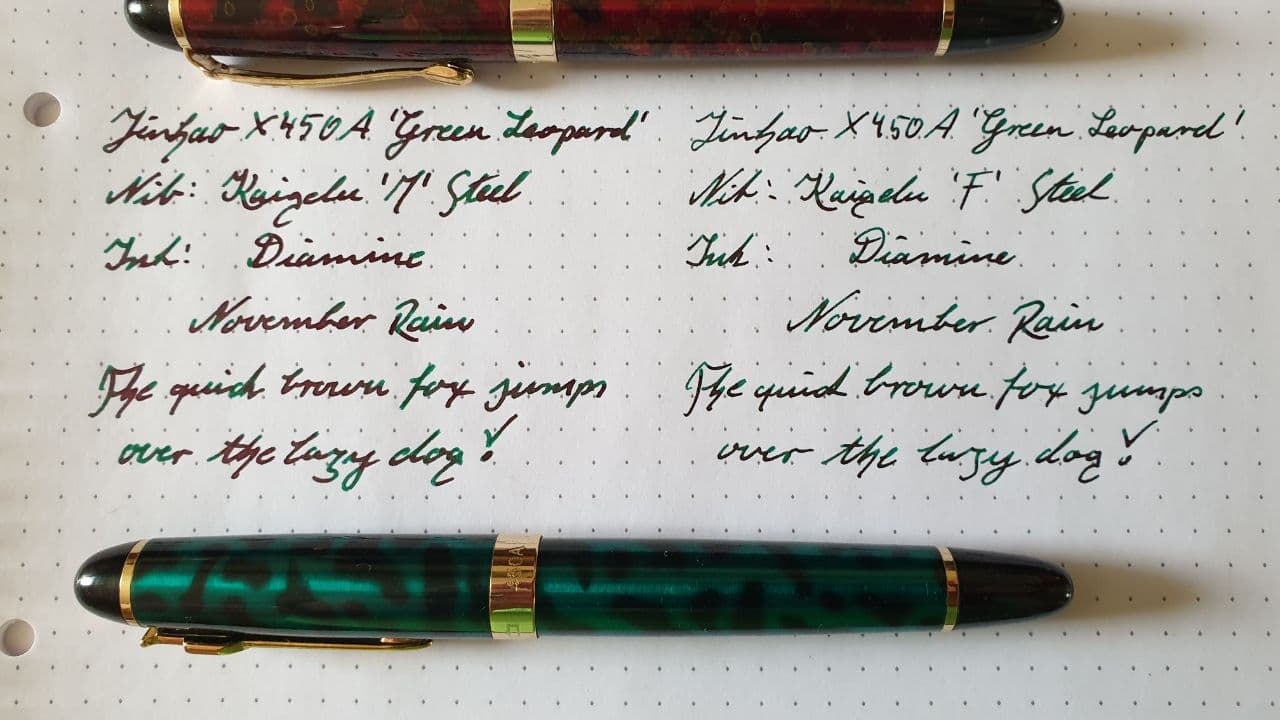 Jinhao X450A 'Green Leopard'
Nib: Kaigelu 'M' Steel
Ink: Diamine
November Rain
The quick brown fox jumps
over the lazy dog!
Jinhao X450A 'Green Leopard'
Nib: Kaigelu 'F' Steel
Ink: Diamine
November Rain
The quick brown fox jumps
over the lazy dog!